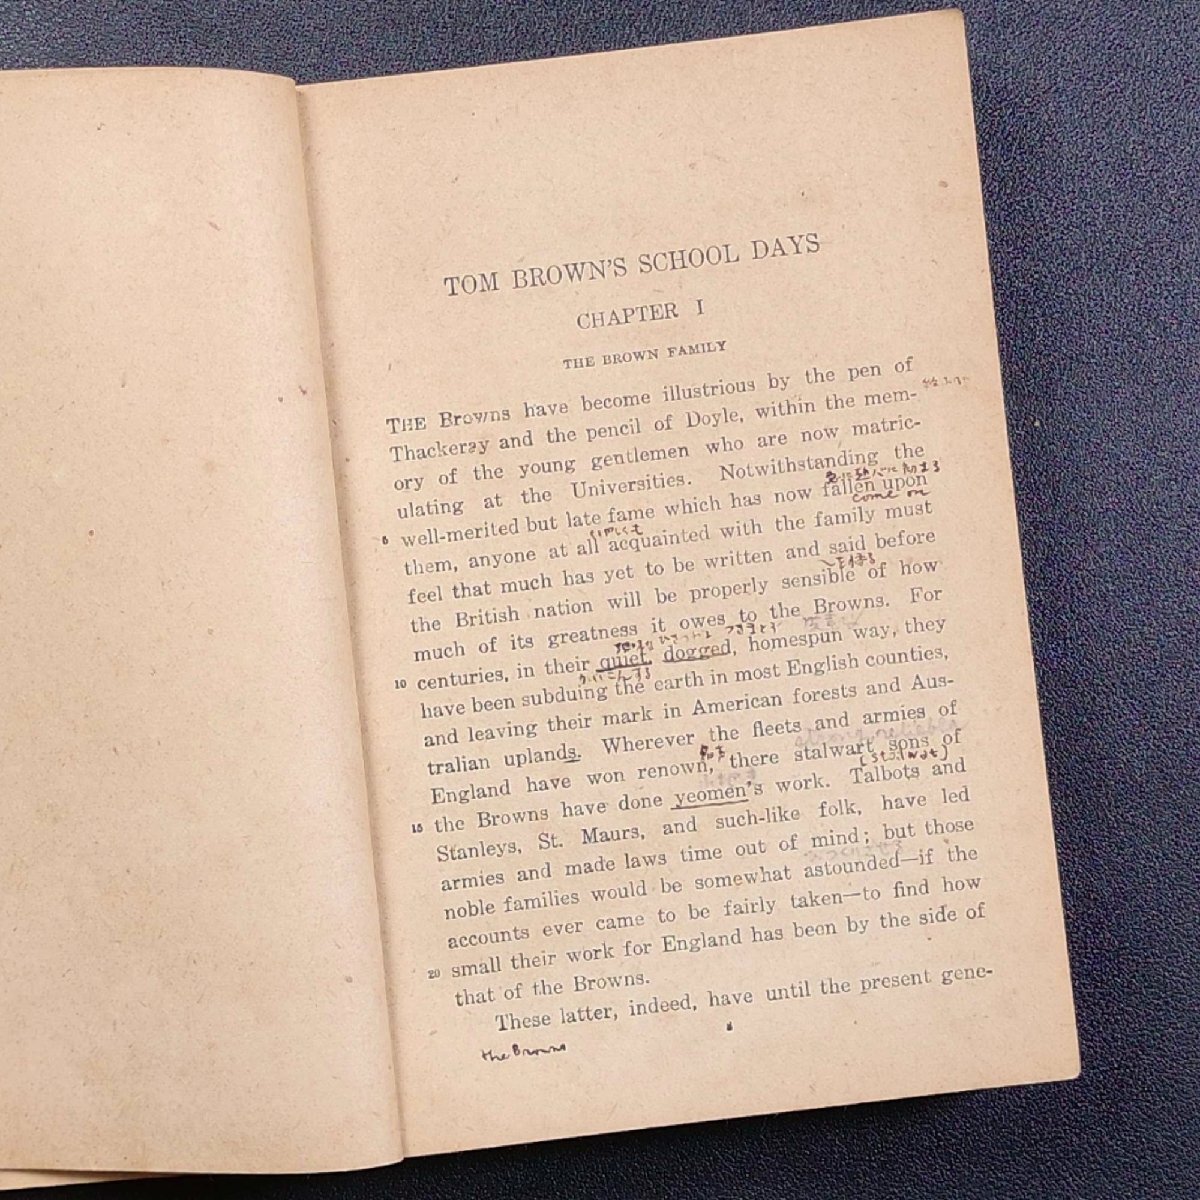 TOM BROWN'S SCHOOL DAYS
CHAPTER I
THE BROWN FAMILY
THE Browns have become illustrious by the pen of
Thackeray and the pencil of Doyle, within the mem-
ory of the young gentlemen who are now matric-
ulating at the Universities. Notwithstanding the
5 well-merited but late fame which has now fallen upon
come on
them, anyone at all acquainted with the family must
feel that much has yet to be written and said before
the British nation will be properly sensible of how
much of its greatness it owes to the Browns. For
10 centuries, in their quiet, dogged, homespun way, they
have been subduing the earth in most English counties,
and leaving their mark in American forests and Aus-
tralian uplands. Wherever the fleets and armies of
England have won renown, there stalwart sons of
15 the Browns have done yeomen's work. Talbots and
Stanleys, St. Maurs, and such-like folk, have led
armies and made laws time out of mind; but those
noble families would be somewhat astounded—if the
accounts ever came to be fairly taken—to find how
20 small their work for England has been by the side of
that of the Browns.
These latter, indeed, have until the present gene-
the Browns